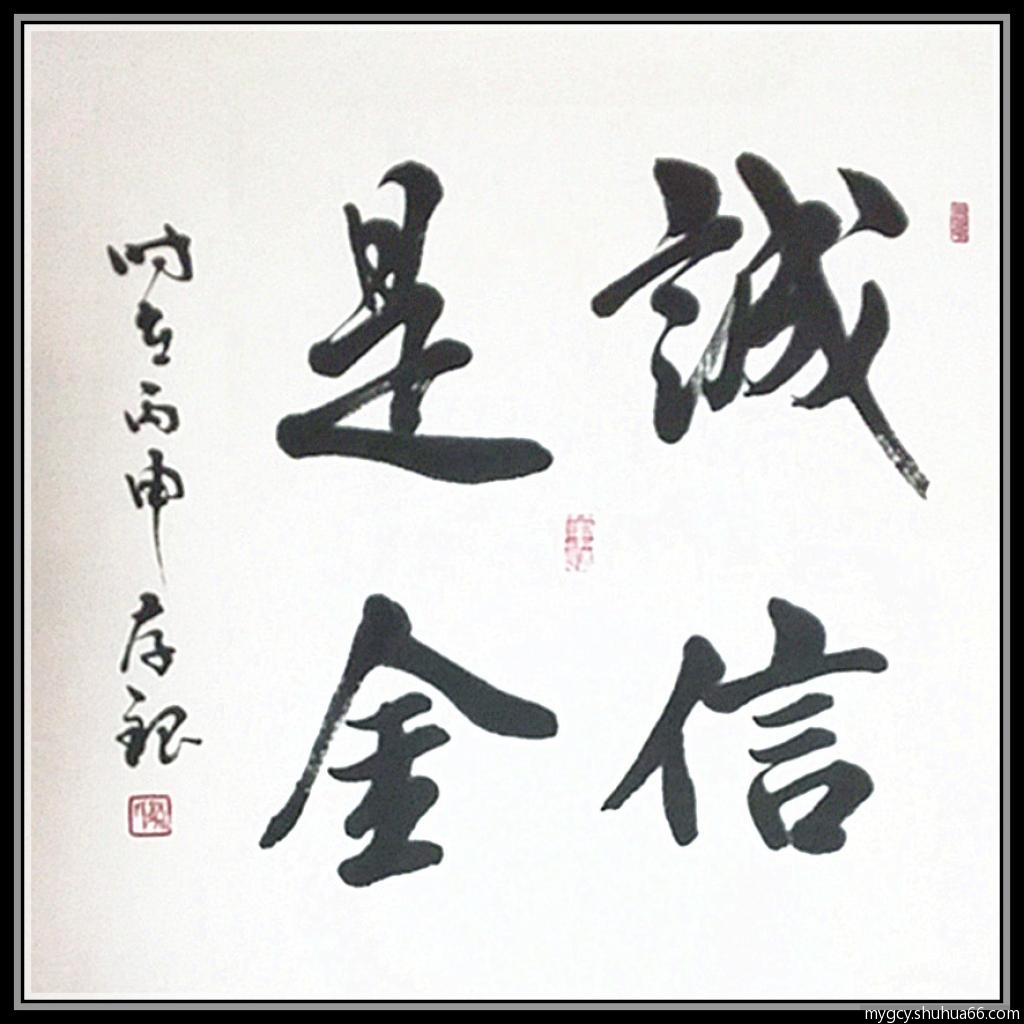 誠信
是金
時在丙申存銀
mygcy.shuhua66.com